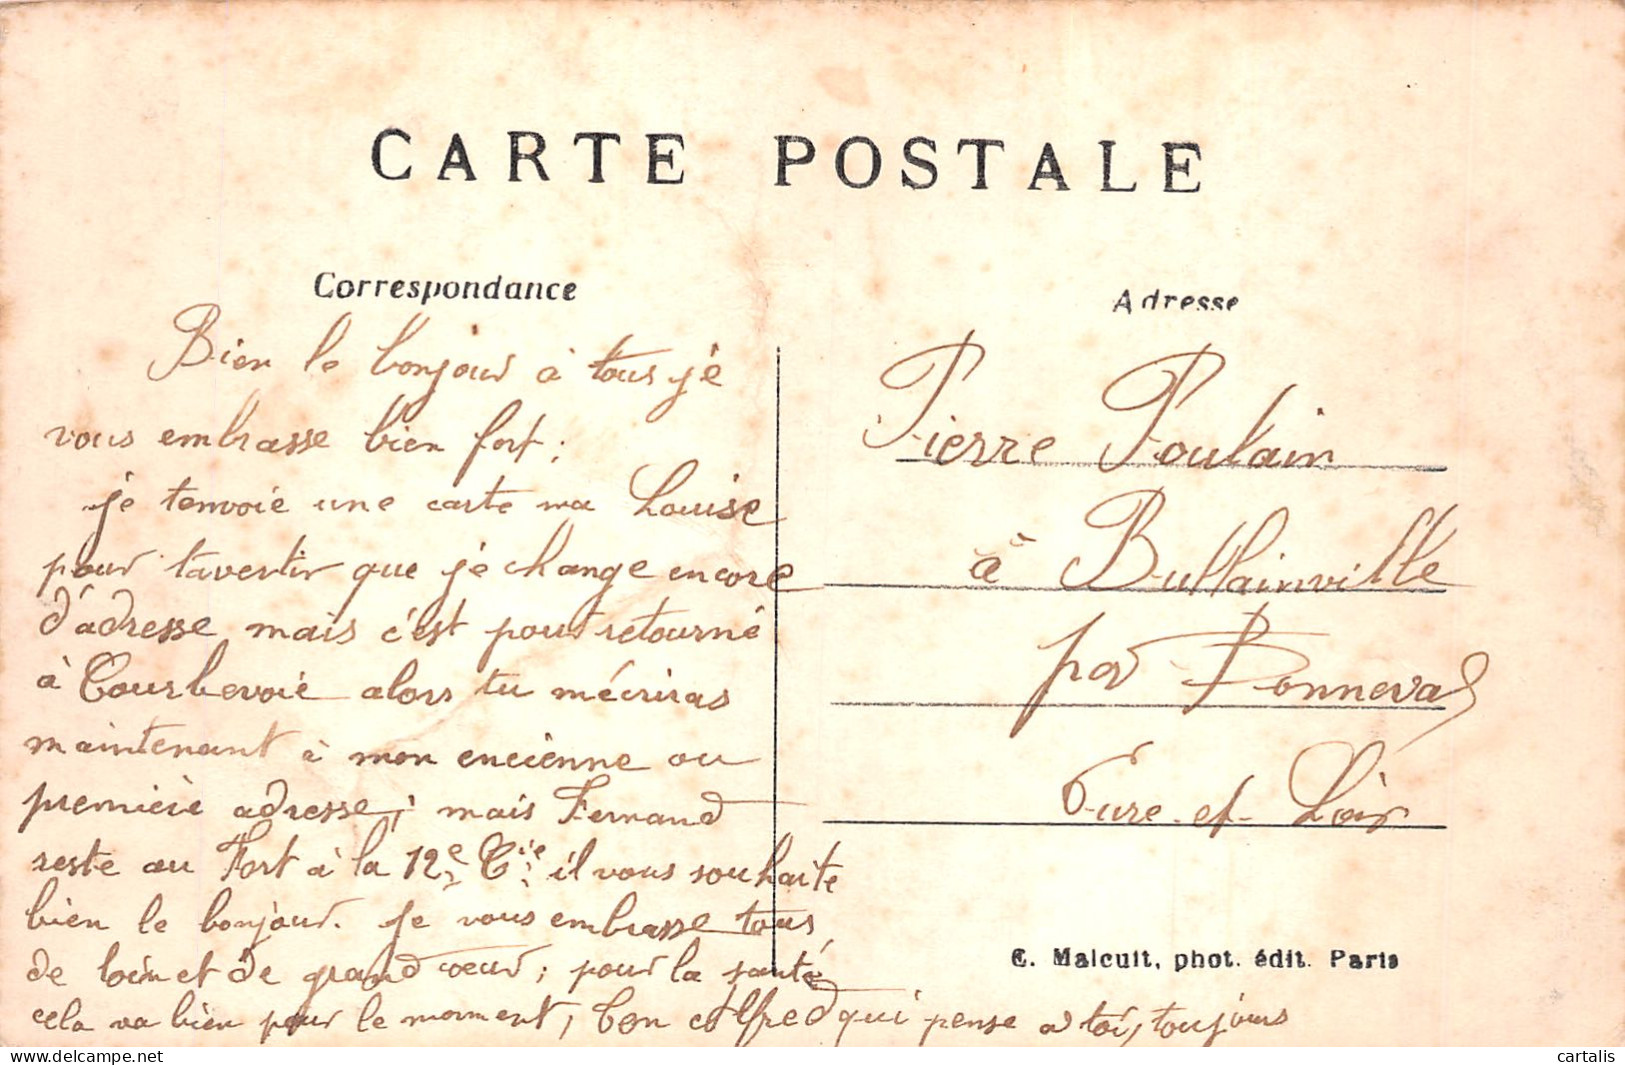 CARTE POSTALE
Correspondance
Bien le bonjour à tous je
vous embrasse bien fort;
je tenvoie une carte ma Louise
pour tavertir que je change encore
d'adresse mais c'est pour retourné
à Courbevoie alors tu mécriras
maintenant à mon encienne ou
première adresse; mais Fernand
reste au Fort à la 12e Cie il vous souhaite
bien le bonjour. Je vous embrasse tous
de loin et de grand coeur; pour la santé
cela va bien pour le moment, Ton Alfred qui pense a toi, toujours
Adresse
Pierre Poulain
à Bullainville
par Bonneval
Eure-et-Loir
C. Malcuit, phot. édit. Paris
delcampe.net
cartalis